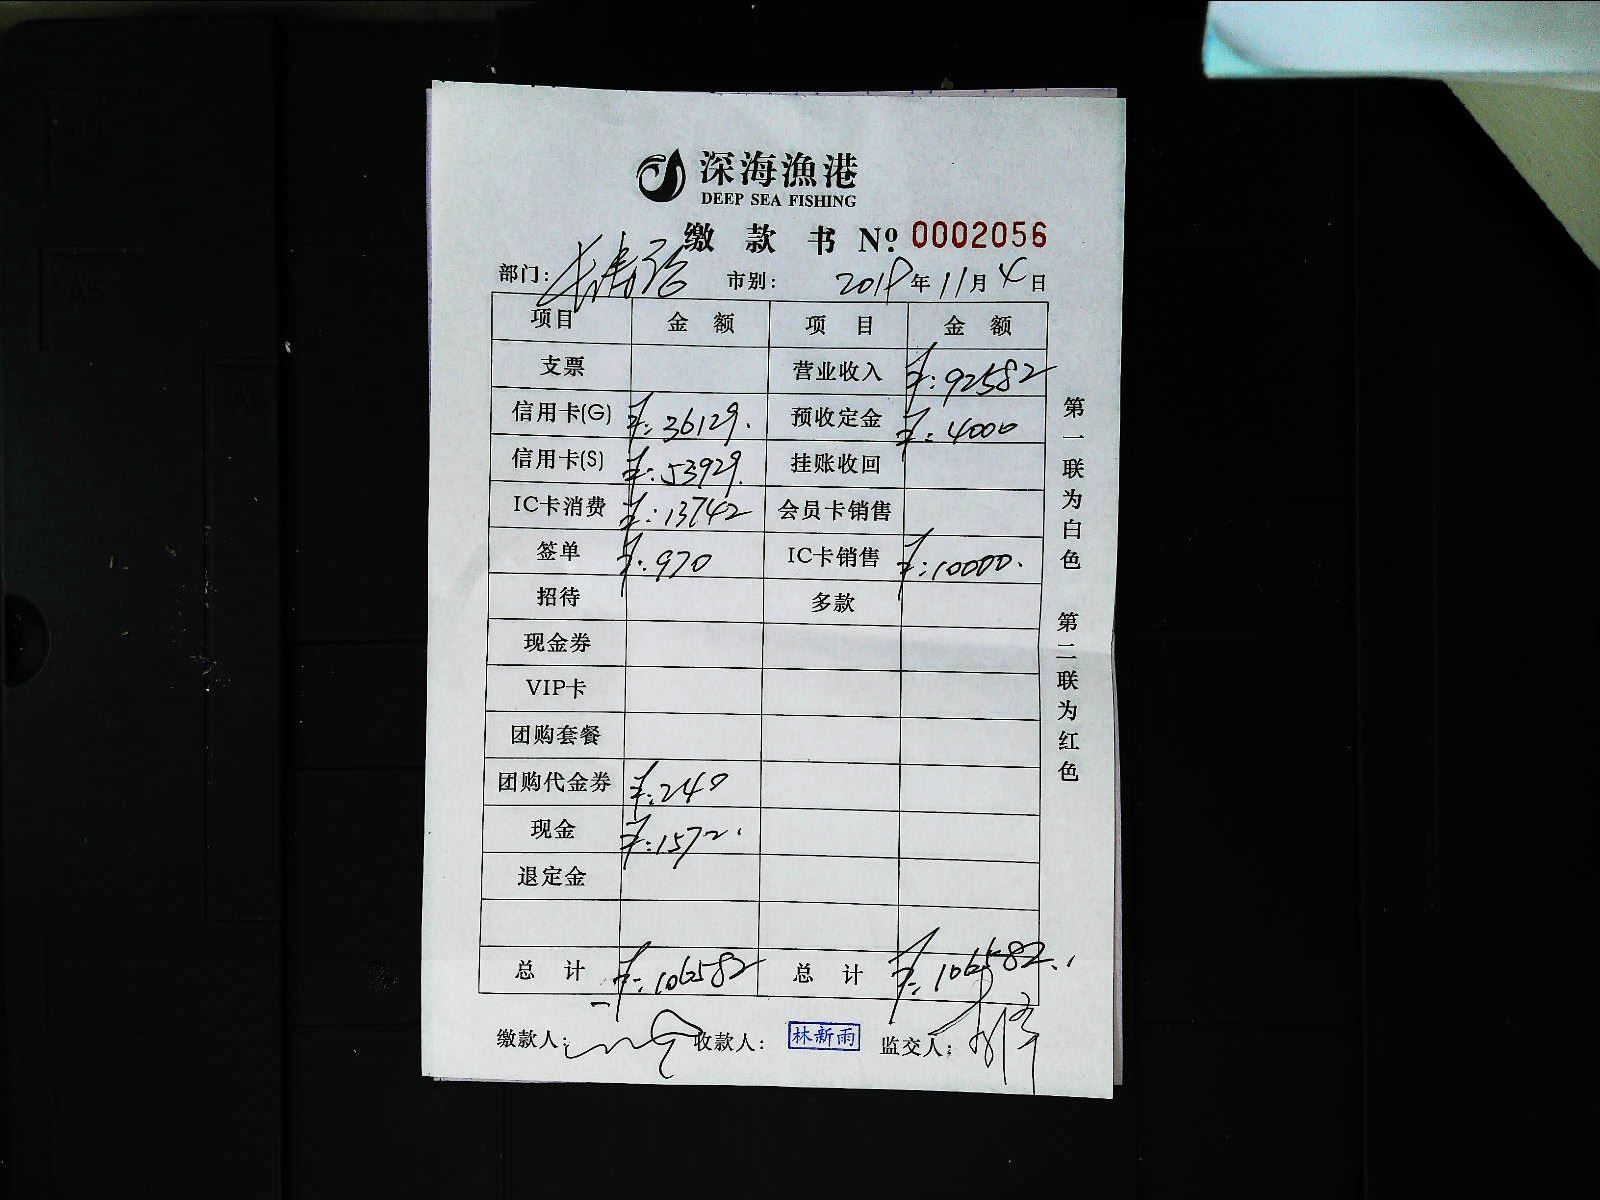 深海漁港
DEEP SEA FISHING
缴款书 Nº 0002056
部门: 市别: 2018年11月4日
项目 金额 项目 金额
支票 营业收入 ¥:92582
信用卡(G) ¥:36129. 预收定金 ¥:4000
信用卡(S) ¥:53929. 挂账收回
IC卡消费 ¥:13742 会员卡销售
签单 ¥:970 IC卡销售 ¥:10000.
招待 多款
现金券
VIP卡
团购套餐
团购代金券 ¥:240
现金 ¥:1572.
退定金
总计 ¥:106582 总计 ¥:106582.
缴款人: 收款人: 林新雨 监交人:
第一联为白色 第二联为红色